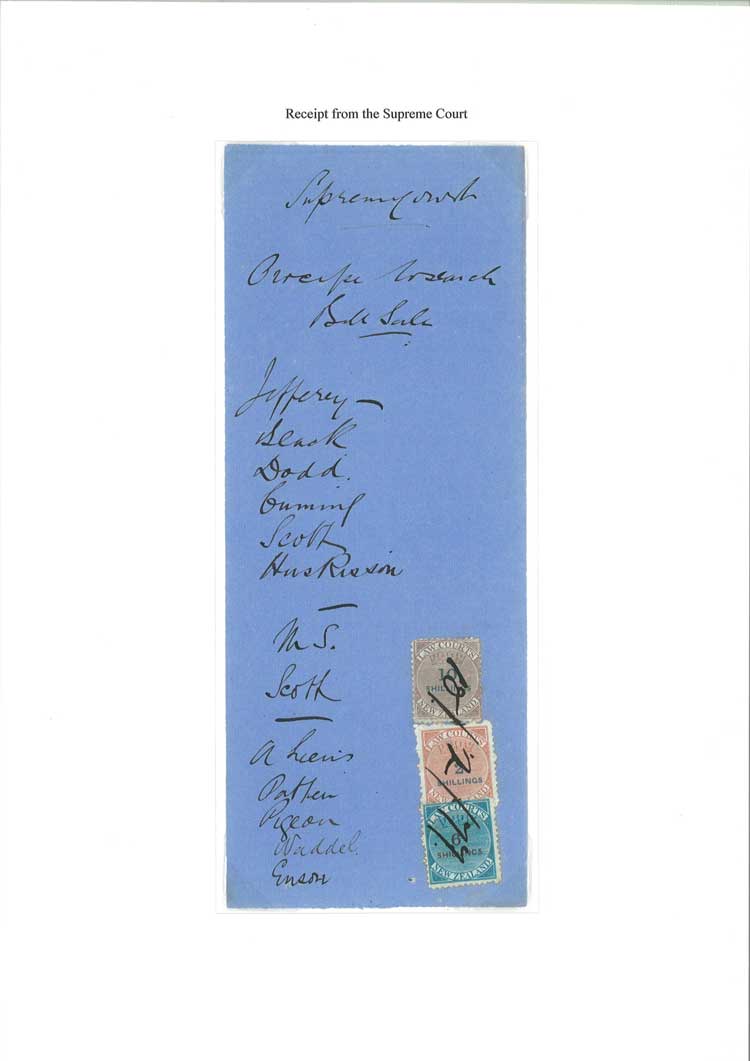 Receipt from the Supreme Court
Supreme Court
Precipe to search
Bill Sale
Jefferey —
Black
Dodd.
Cuming
Scott
Huskisson
M S.
Scott
A Lewis
Patten
Pigeon
Waddel.
Enson
LAW COURTS
10
SHILLINGS
NEW ZEALAND
LAW COURTS
2
SHILLINGS
NEW ZEALAND
LAW COURTS
6
SHILLINGS
NEW ZEALAND